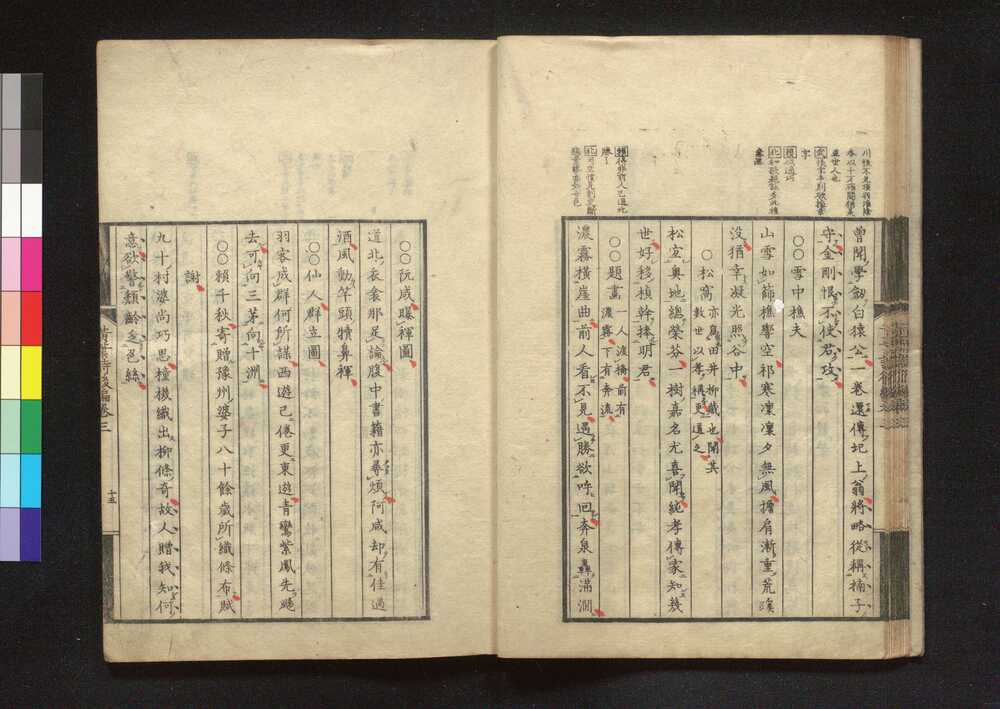 曾聞學劔白猿公一卷還傳圯上翁將略從稱捅子
守金剛恨不使君攻
○○雪中樵夫
山雪如篩樵響空祁寒凜凜夕無風擔肩漸重荒溪
没猶幸凝光照谷中
○松窩
亦烏田并柳蔵也聞其
數世以孝稱更道之
松窓奥地總榮芬一樹嘉名尤喜聞純孝傳家知幾
世好移楨幹捧明君
○○題畫
一人渡橋前有
濃霧下有奔流
濃霧橫崖曲前人看不見遇勝欲呼回奔泉轟滿澗
○○阮咸曝褌圖
道北衣衾那足論腹中書籍亦尋煩阿咸却有佳過
酒風動竿頭犢鼻褌
○○仙人群立圖
羽客成群何所謀西遊已倦更東遊青鸞紫鳳先飈
去可向三茅向十洲
○○賴千秋寄贈豫州婆子八十餘歲所織條布賦
謝
九十村婆尚巧思檀機織出柳條奇故人贈我知何
意欲警頽齡乏邑絲
卷三
十五